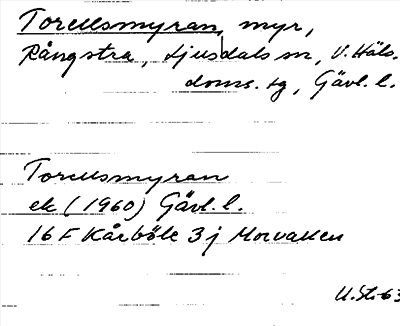 Torulsmyran, myr,
Rångstra, Ljusdals sn, V. Häls.
doms. sg, Gävl. l.
Torulsmyran
ek (1960) Gävl. l.
16 F Kårböle 3 j Morvallen
U. St. 63